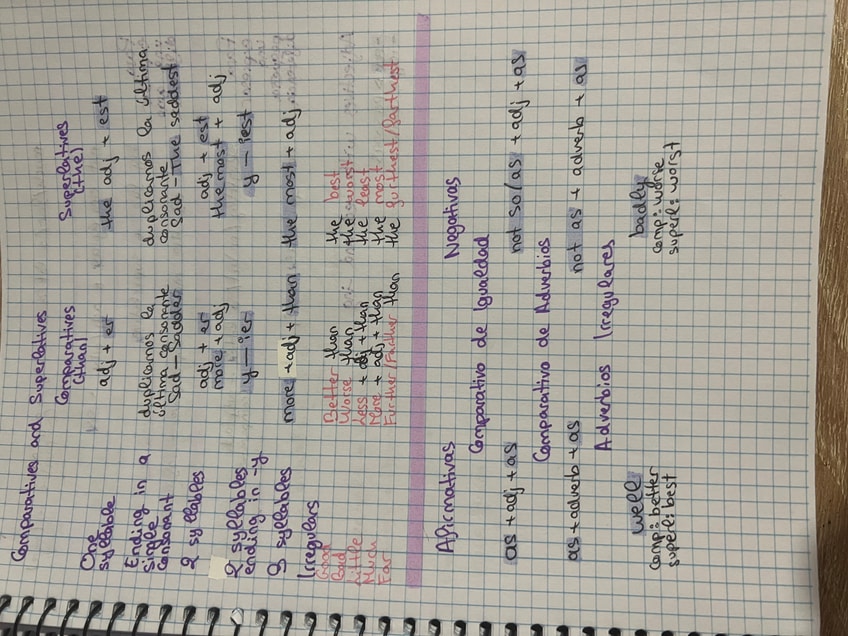 Comparatives and Superlatives
Comparatives (than)
Superlatives (the)
One syllable
adj + er
the adj + est
Ending in a single consonant
duplicamos la última consonante
Sad – Sadder
duplicamos la última consonante
Sad – The saddest
2 syllables
adj + er
more + adj
adj + est
the most + adj
2 syllables ending in -y
y – ier
y – iest
3 syllables
more + adj + than
the most + adj
Irregulars
Good
Better than
the best
Bad
Worse than
the worst
Little
Less + adj + than
the least
Much
More + adj + than
the most
Far
Further/Farther than
the furthest/farthest
Afirmativas
Negativas
Comparativo de Igualdad
as + adj + as
not so/as + adj + as
Comparativo de Adverbios
as + adverb + as
not as + adverb + as
Adverbios Irregulares
well
comp: better
superl: best
badly
comp: worse
superl: worst